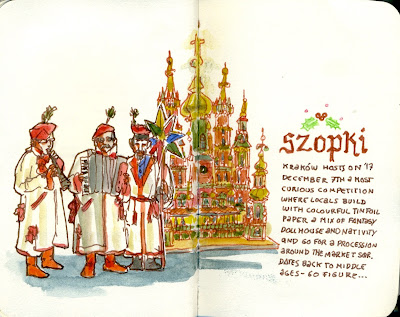 szopki
KRAKÓW HOSTS ON 17
DECEMBER 7TH A MOST
CURIOUS COMPETITION
WHERE LOCALS BUILD
WITH COLOURFUL TINFOIL
PAPER A MIX OF FANTASY
DOLLHOUSE AND NATIVITY
AND GO FOR A PROCESSION
AROUND THE MARKET SQR.
DATES BACK TO MIDDLE
AGES - GO FIGURE...